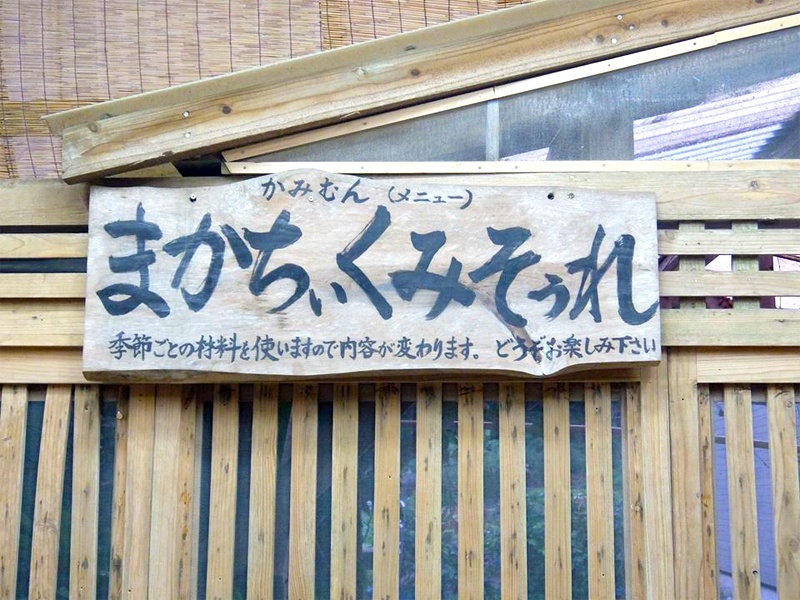 かみむん (メニュー)
まかちぃくみそぅれ
季節ごとの材料を使いますので内容が変わります。 どうぞお楽しみ下さい